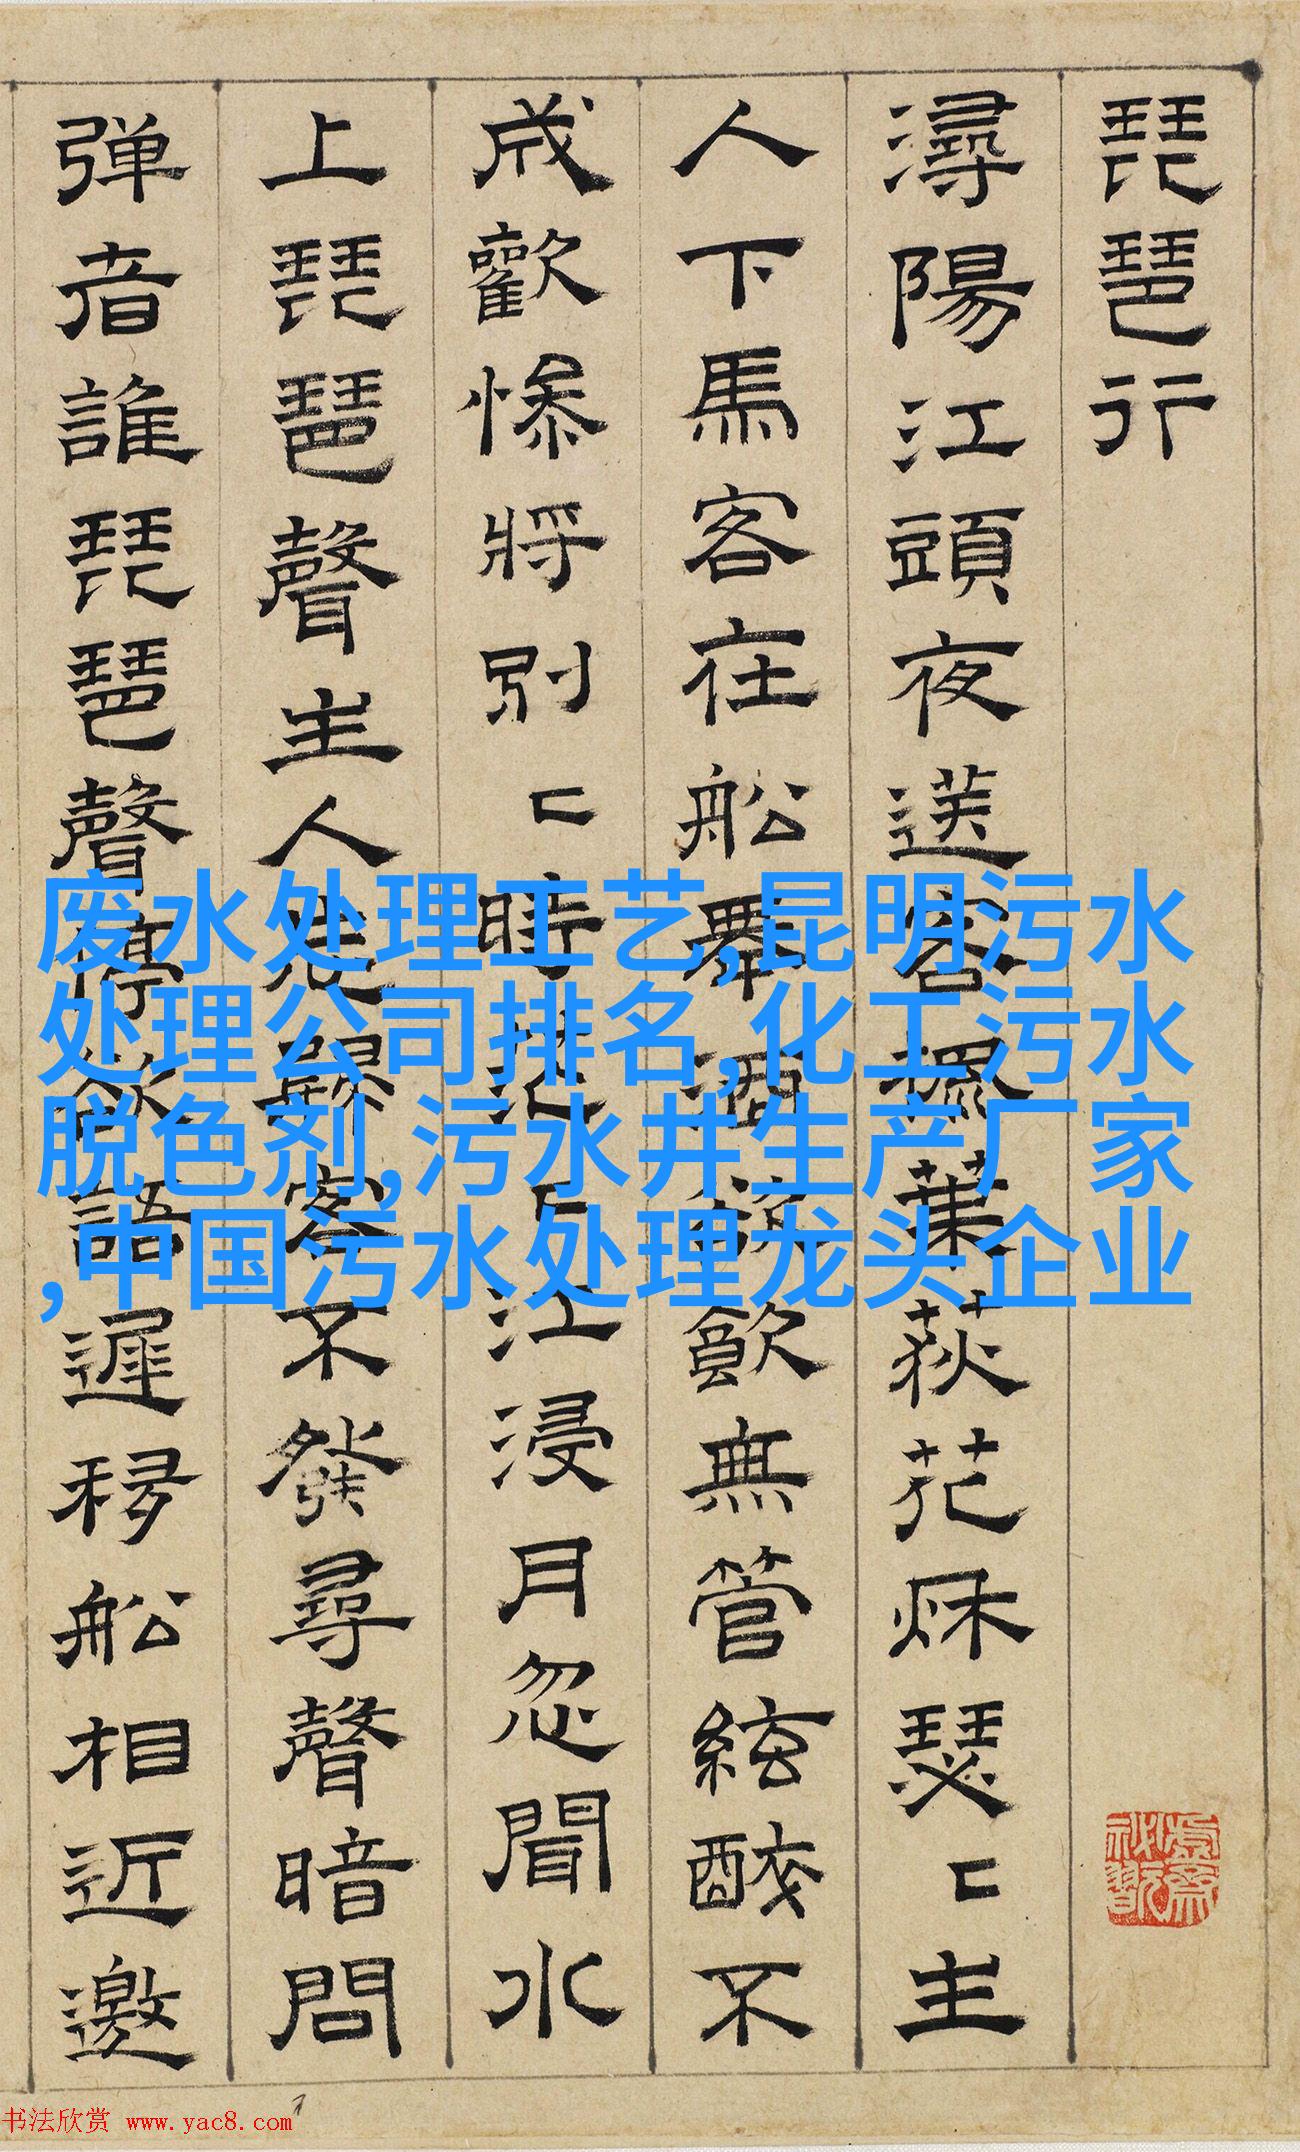 琵琶行
潯陽江頭夜送客楓葉荻花秋瑟〻主
人下馬客在船舉酒欲飲無管絃醉不
成歡慘將別〻時茫〻江浸月忽聞水
上琵琶聲主人忘歸客不發尋聲暗問
弹者誰琵琶聲停欲語遲移船相近邀
废水处理工艺,昆明污水
处理公司排名,化工污水
脱色剂,污水井生产厂家
,中国污水处理龙头企业
书法欣赏 www.yac8.com